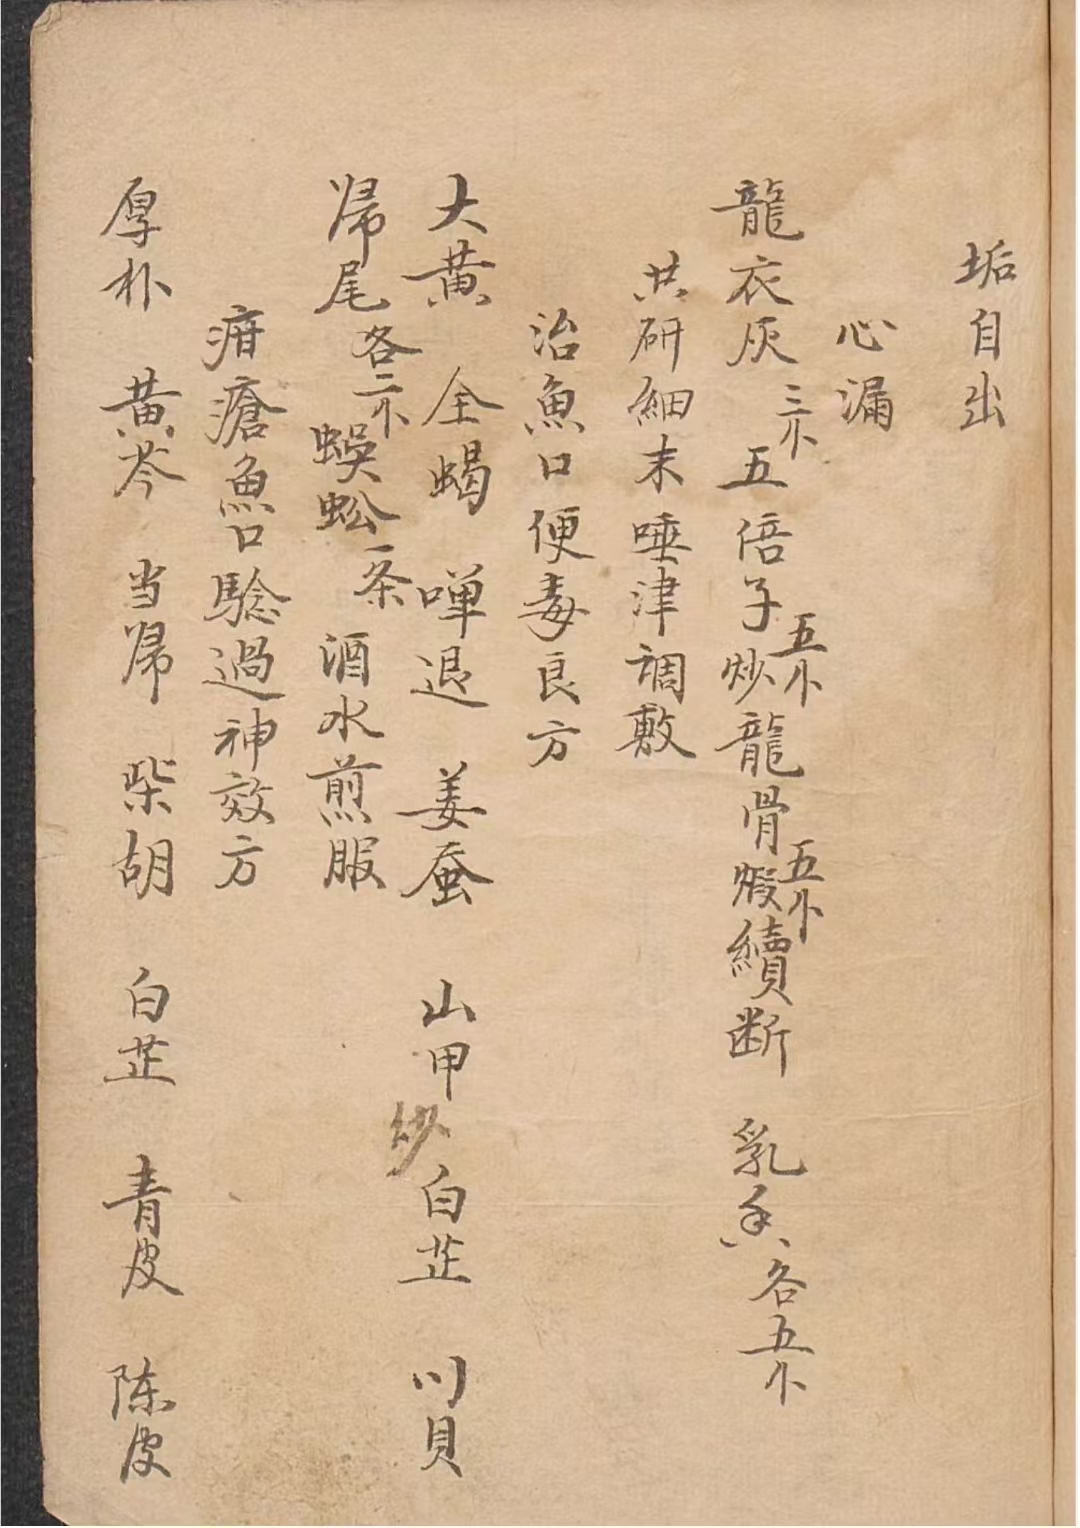 垢自出
心漏
龍衣灰三卜五倍子炒五卜龍骨煅五卜續断 乳香各五卜
共研細末唾津調敷
治魚口便毒良方
大黄 全蝎 嘽退 姜蚕 山甲炒 白芷 川貝
歸尾各二卜蜈蚣一条酒水煎服
疳瘡魚口騐過神效方
厚朴 黄芩 当歸 柴胡 白芷 青皮 陈皮